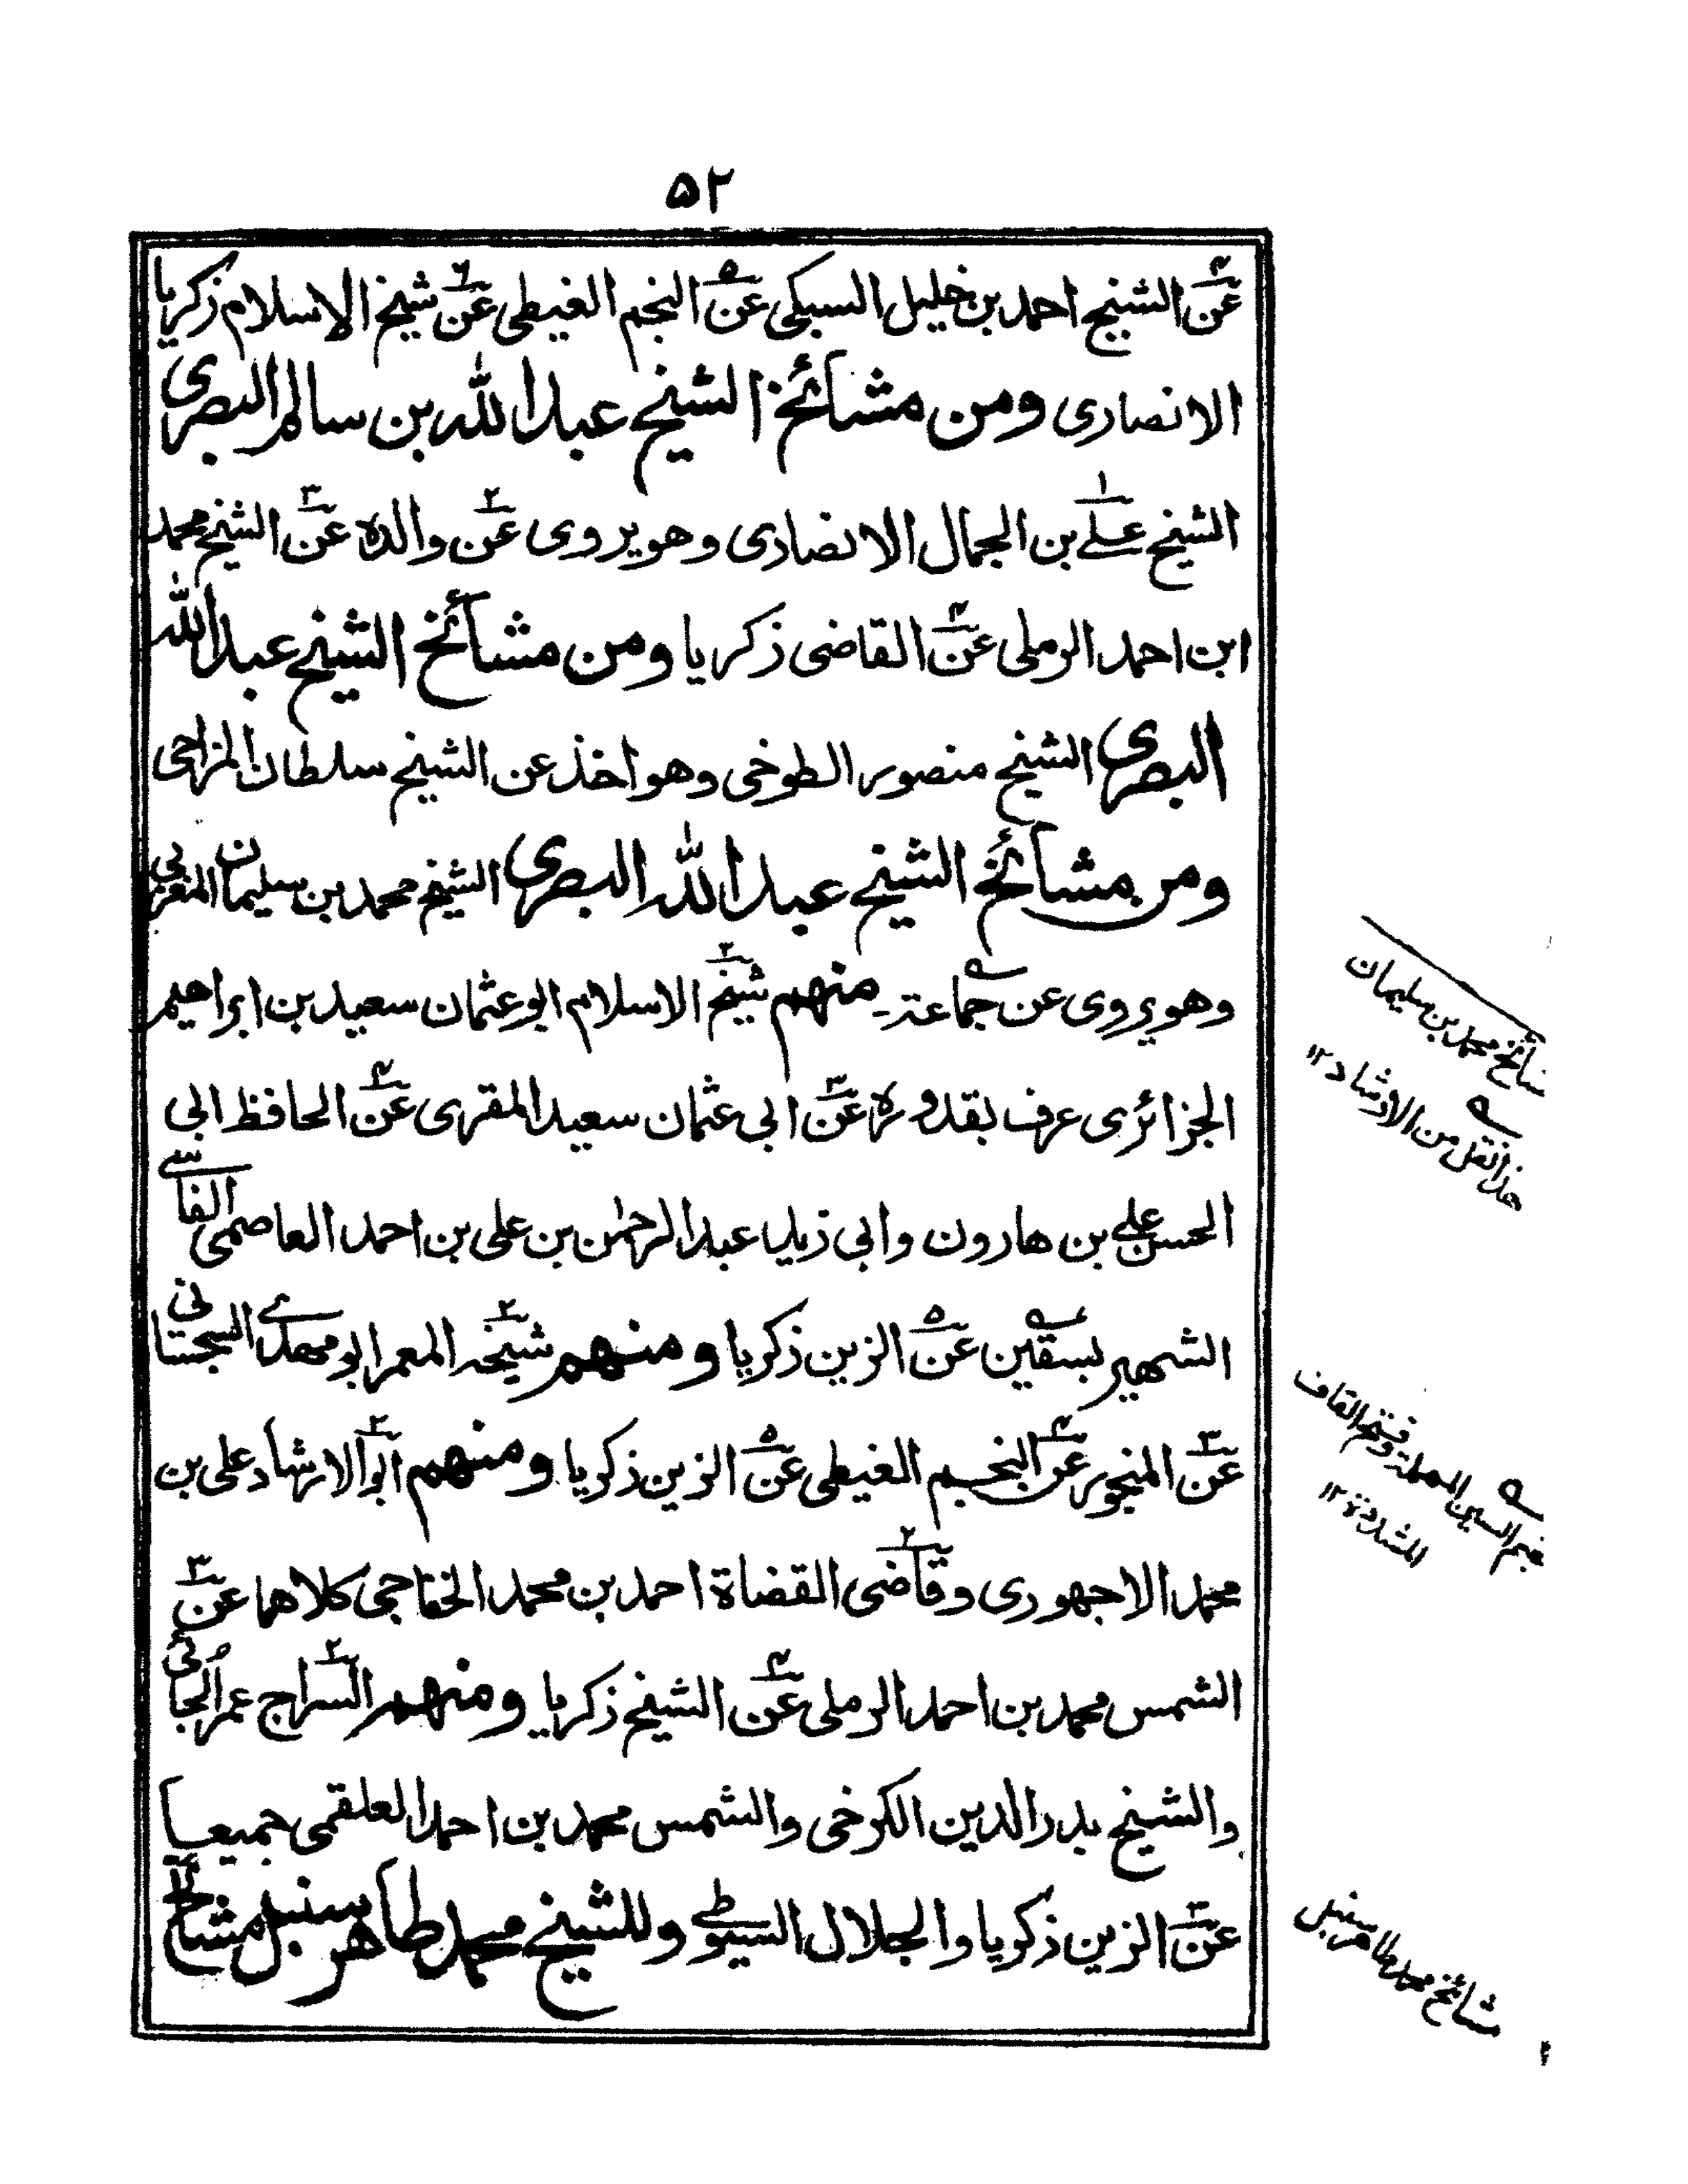 ۵۲
عن الشيخ احمد بن خليل السبكي عن النجم الغيطي عن شيخ الاسلام زكريا
الانصاري ومن مشائخ الشيخ عبد الله بن سالم البصري
الشيخ علے بن الجمال الانصاري وهو يروي عن والده عن الشيخ محمد
ابن احمد الرملي عن القاضي زكريا ومن مشائخ الشيخ عبد الله
البصري الشيخ منصور الطوخي وهو اخذ عن الشيخ سلطان المزاحي
ومن مشائخ الشيخ عبد الله البصري الشيخ محمد بن سليمان المغربي
وهو يروي عن جماعة۔ منهم شيخ الاسلام ابو عثمان سعيد بن ابراهيم
الجزائري عرف بقدوره عن ابي عثمان سعيد المقري عن الحافظ ابي
الحسن علے بن هارون وابي زيد عبد الرحمٰن بن علي بن احمد العاصمي الفاسے
الشهير بسقين عن الزين زكريا ومنهم شيخه المعمر ابو مهدے السجستاني
عن المنجور عن النجم الغيطي عن الزين زكريا ومنهم ابو الارشاد علي بن
محمد الاجهوري وقاضي القضاة احمد بن محمد الخفاجي كلاهما عن
الشمس محمد بن احمد الرملي عن الشيخ زكريا ومنهم السراج عمر الجائي
والشيخ بدر الدين الكرخي والشمس محمد بن احمد العلقمي جميعا
عن الزين زكريا والجلال السيوطے وللشيخ محمد طاهر سنبل مشائخ
مشائخ محمد بن سليمان
هذا نقل من الارشاد ۱۲
بضم السين المهملة وفتح القاف
المشددة ۱۲
مشائخ محمد طاهر سنبل